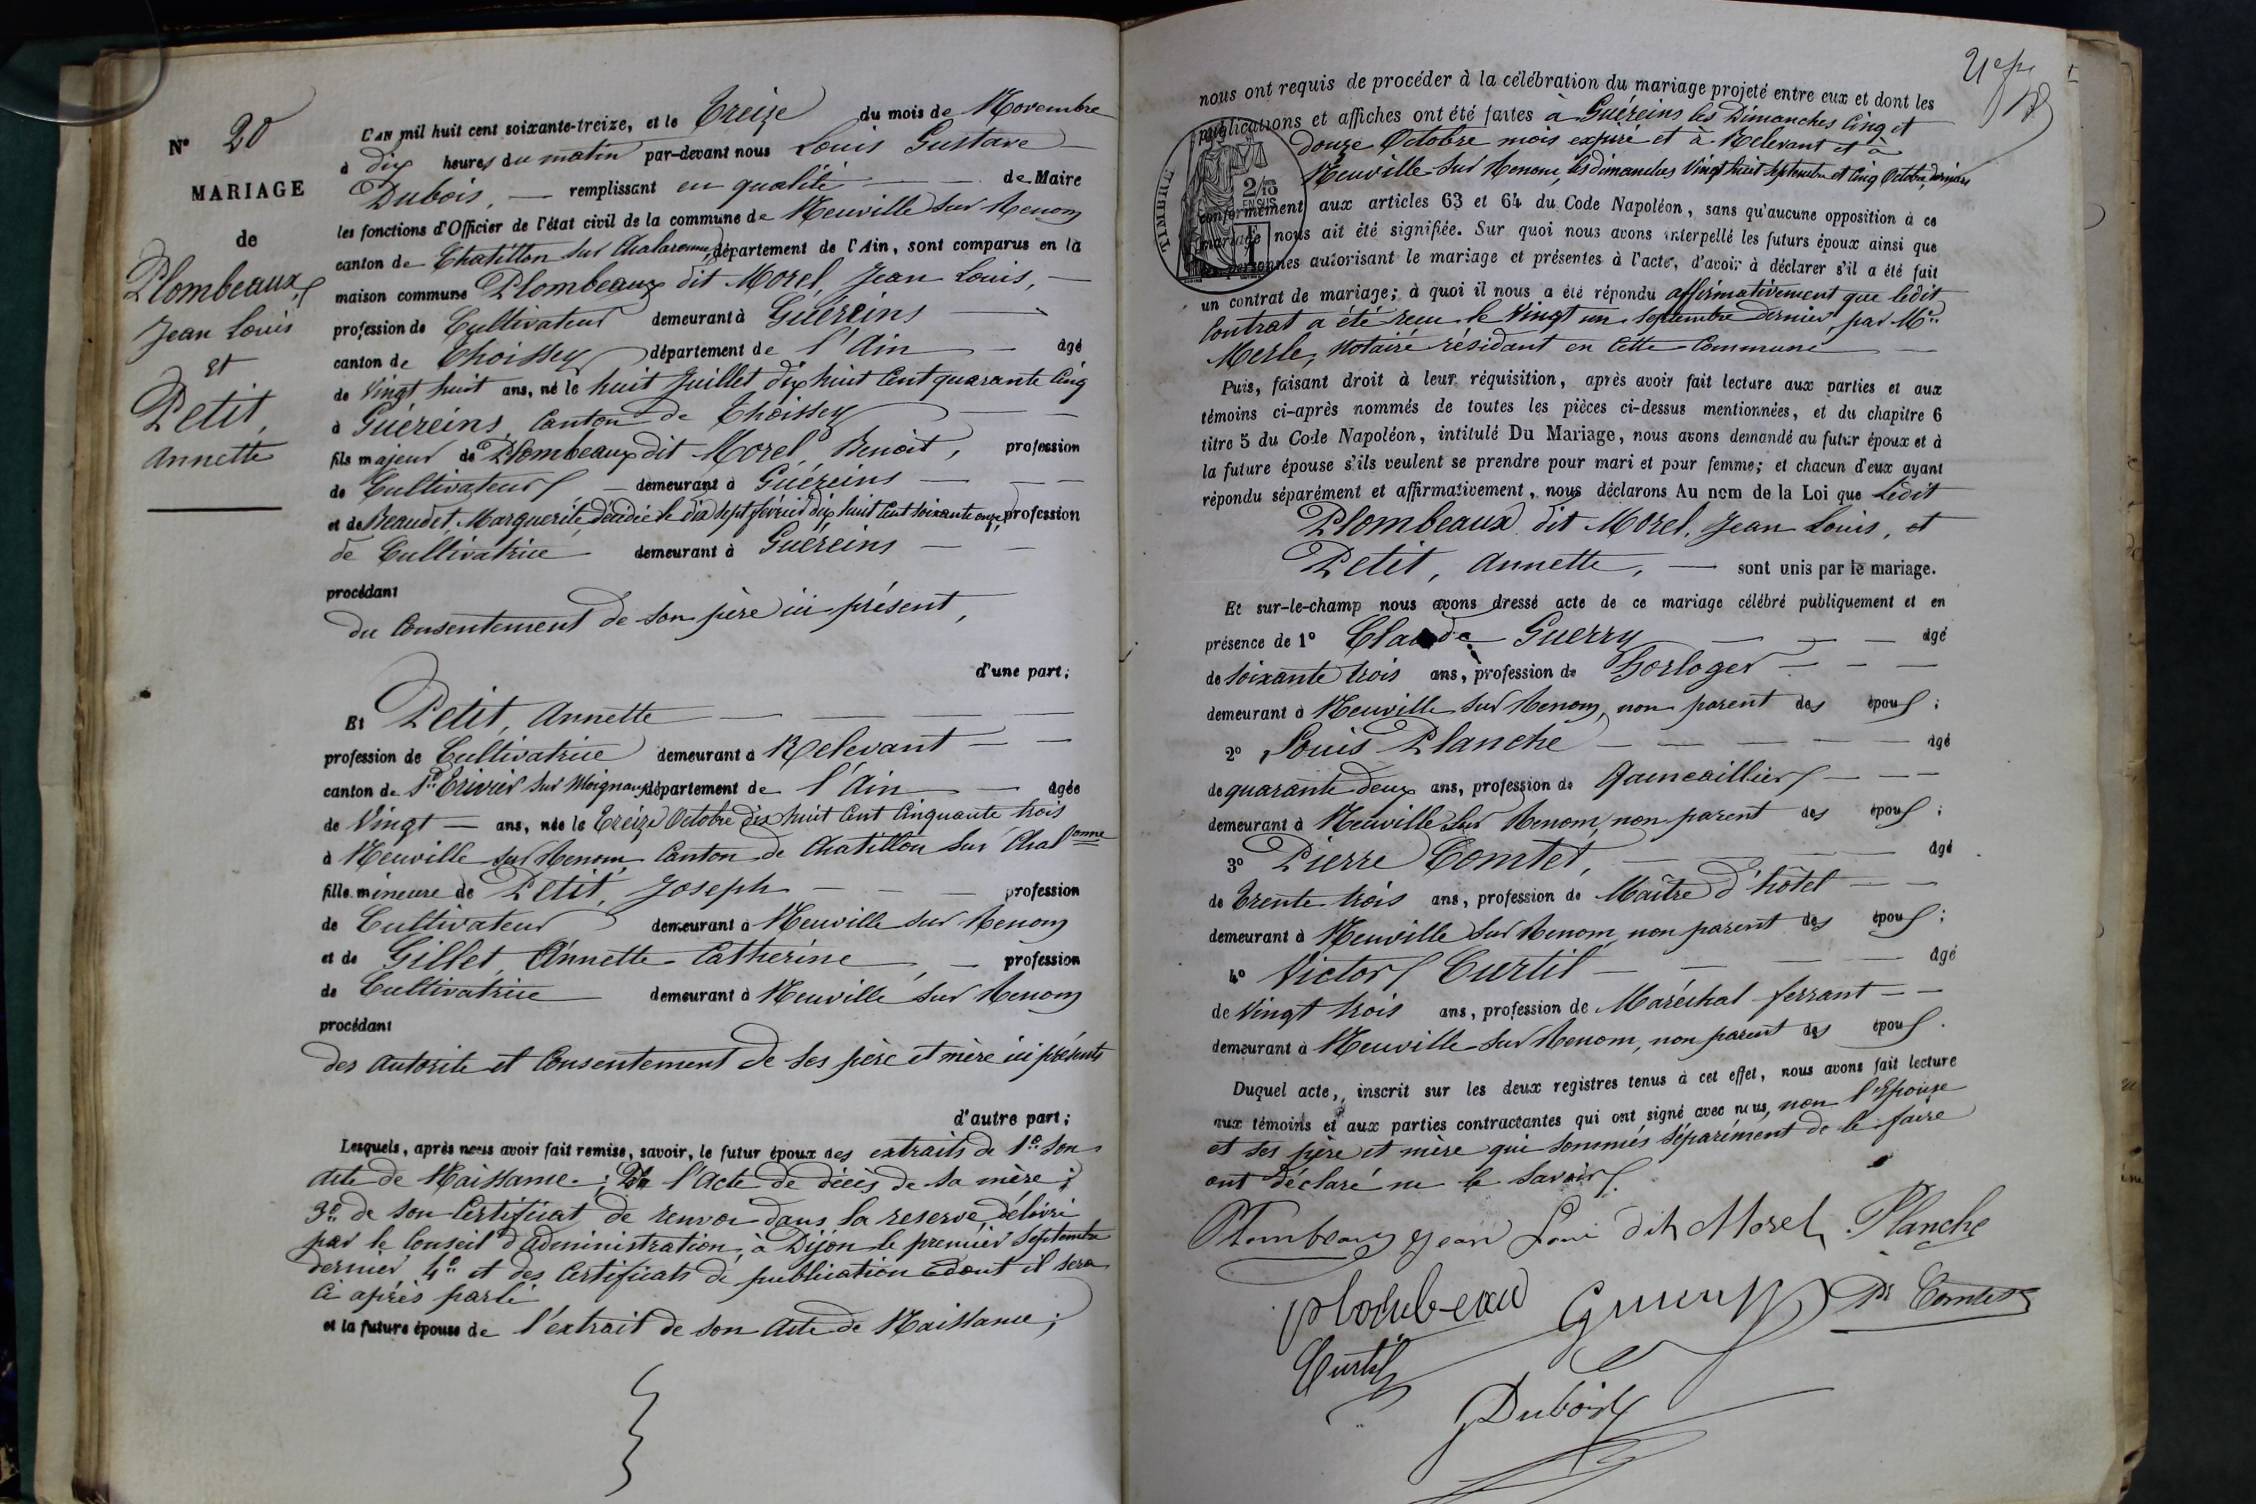 N° 20
MARIAGE
de
Plombeaux,
Jean Louis
et
Petit,
Annette
L'AN mil huit cent soixante-treize, et le Treize du mois de Novembre
à dix heures du matin par-devant nous Louis Gustave
Dubois, remplissant en qualité de Maire
les fonctions d'Officier de l'état civil de la commune de Neuville sur Renom
canton de Chatillon sur Chalaronne, département de l'Ain, sont comparus en la
maison commune Plombeaux dit Morel, Jean Louis,
profession de Cultivateur demeurant à Guéreins
canton de Thoissey département de l'Ain âgé
de Vingt huit ans, né le huit Juillet dix huit Cent quarante Cinq
à Guéreins, Canton de Thoissey
fils majeur de Plombeaux dit Morel, Benoit, profession
de Cultivateur demeurant à Guéreins
et de Beaudet, Marguerite, décédée le dix sept février dix huit Cent soixante onze, profession
de Cultivatrice demeurant à Guéreins
procédant
du Consentement de son père ici présent,
d'une part;
Et Petit, Annette
profession de Cultivatrice demeurant à Relevant
canton de St Trivier sur Moignans département de l'Ain âgée
de Vingt ans, née le Treize Octobre dix huit Cent Cinquante trois
à Neuville sur Renom Canton de Chatillon sur Chalonne
fille mineure de Petit, Joseph profession
de Cultivateur demeurant à Neuville sur Renom
et de Gillet, Annette Catherine, profession
de Cultivatrice demeurant à Neuville sur Renom
procédant
des autorité et Consentement de ses père et mère ici présents
d'autre part;
Lesquels, après nous avoir fait remise, savoir, le futur époux des extraits de 1° son
acte de Naissance; 2° l'Acte de décès de sa mère;
3° de son Certificat de renvoi dans la reserve délivré
par le Conseil d'administration à Dijon le premier Septembre
dernier 4° et des Certificats de publication dont il sera
Ci après parlé
et la future épouse de l'extrait de son Acte de Naissance;
nous ont requis de procéder à la célébration du mariage projeté entre eux et dont les
publications et affiches ont été faites à Guéreins les Dimanches Cinq et
douze Octobre mois expiré et à Relevant et à
Neuville sur Renom, les dimanches Vingt huit Septembre et Cinq Octobre derniers
TIMBRE 2/10 EN SUS
conformément aux articles 63 et 64 du Code Napoléon, sans qu'aucune opposition à ce
mariage nous ait été signifiée. Sur quoi nous avons interpellé les futurs époux ainsi que
les personnes autorisant le mariage et présentes à l'acte, d'avoir à déclarer s'il a été fait
un contrat de mariage; à quoi il nous a été répondu affirmativement que ledit
Contrat a été reçu le Vingt un Septembre dernier, par Me
Merle, Notaire résidant en Cette Commune
Puis, faisant droit à leur réquisition, après avoir fait lecture aux parties et aux
témoins ci-après nommés de toutes les pièces ci-dessus mentionnées, et du chapitre 6
titre 5 du Code Napoléon, intitulé Du Mariage, nous avons demandé au futur époux et à
la future épouse s'ils veulent se prendre pour mari et pour femme; et chacun d'eux ayant
répondu séparément et affirmativement, nous déclarons Au nom de la Loi que Ledit
Plombeaux dit Morel, Jean Louis, et
Petit, Annette, sont unis par le mariage.
Et sur-le-champ nous avons dressé acte de ce mariage célébré publiquement et en
présence de 1° Claude Guerry âgé
de soixante trois ans, profession de horloger
demeurant à Neuville sur Renom, non parent des époux;
2° Louis Planche âgé
de quarante deux ans, profession de Quincaillier
demeurant à Neuville sur Renom, non parent des époux;
3° Pierre Comtet, âgé
de Trente trois ans, profession de Maître d'hôtel
demeurant à Neuville sur Renom, non parent des époux;
4° Victor Curtil âgé
de Vingt trois ans, profession de Maréchal ferrant
demeurant à Neuville sur Renom, non parent des époux.
Duquel acte, inscrit sur les deux registres tenus à cet effet, nous avons fait lecture
aux témoins et aux parties contractantes qui ont signé avec nous, non l'Epouse
et ses père et mère qui sommés séparément de le faire
ont déclaré ne le savoir.
Plombeaux Jean Loui dit Morel Planche
plombeau Guerry Pe Comtet
Curtil
Dubois